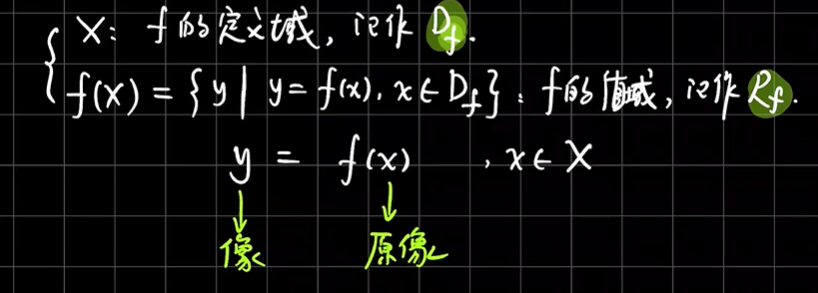 X: f的定义域, 记作 D_f.
f(X) = { y | y = f(x), x ∈ D_f }: f的值域, 记作 R_f.
y = f(x) , x ∈ X
像 原像